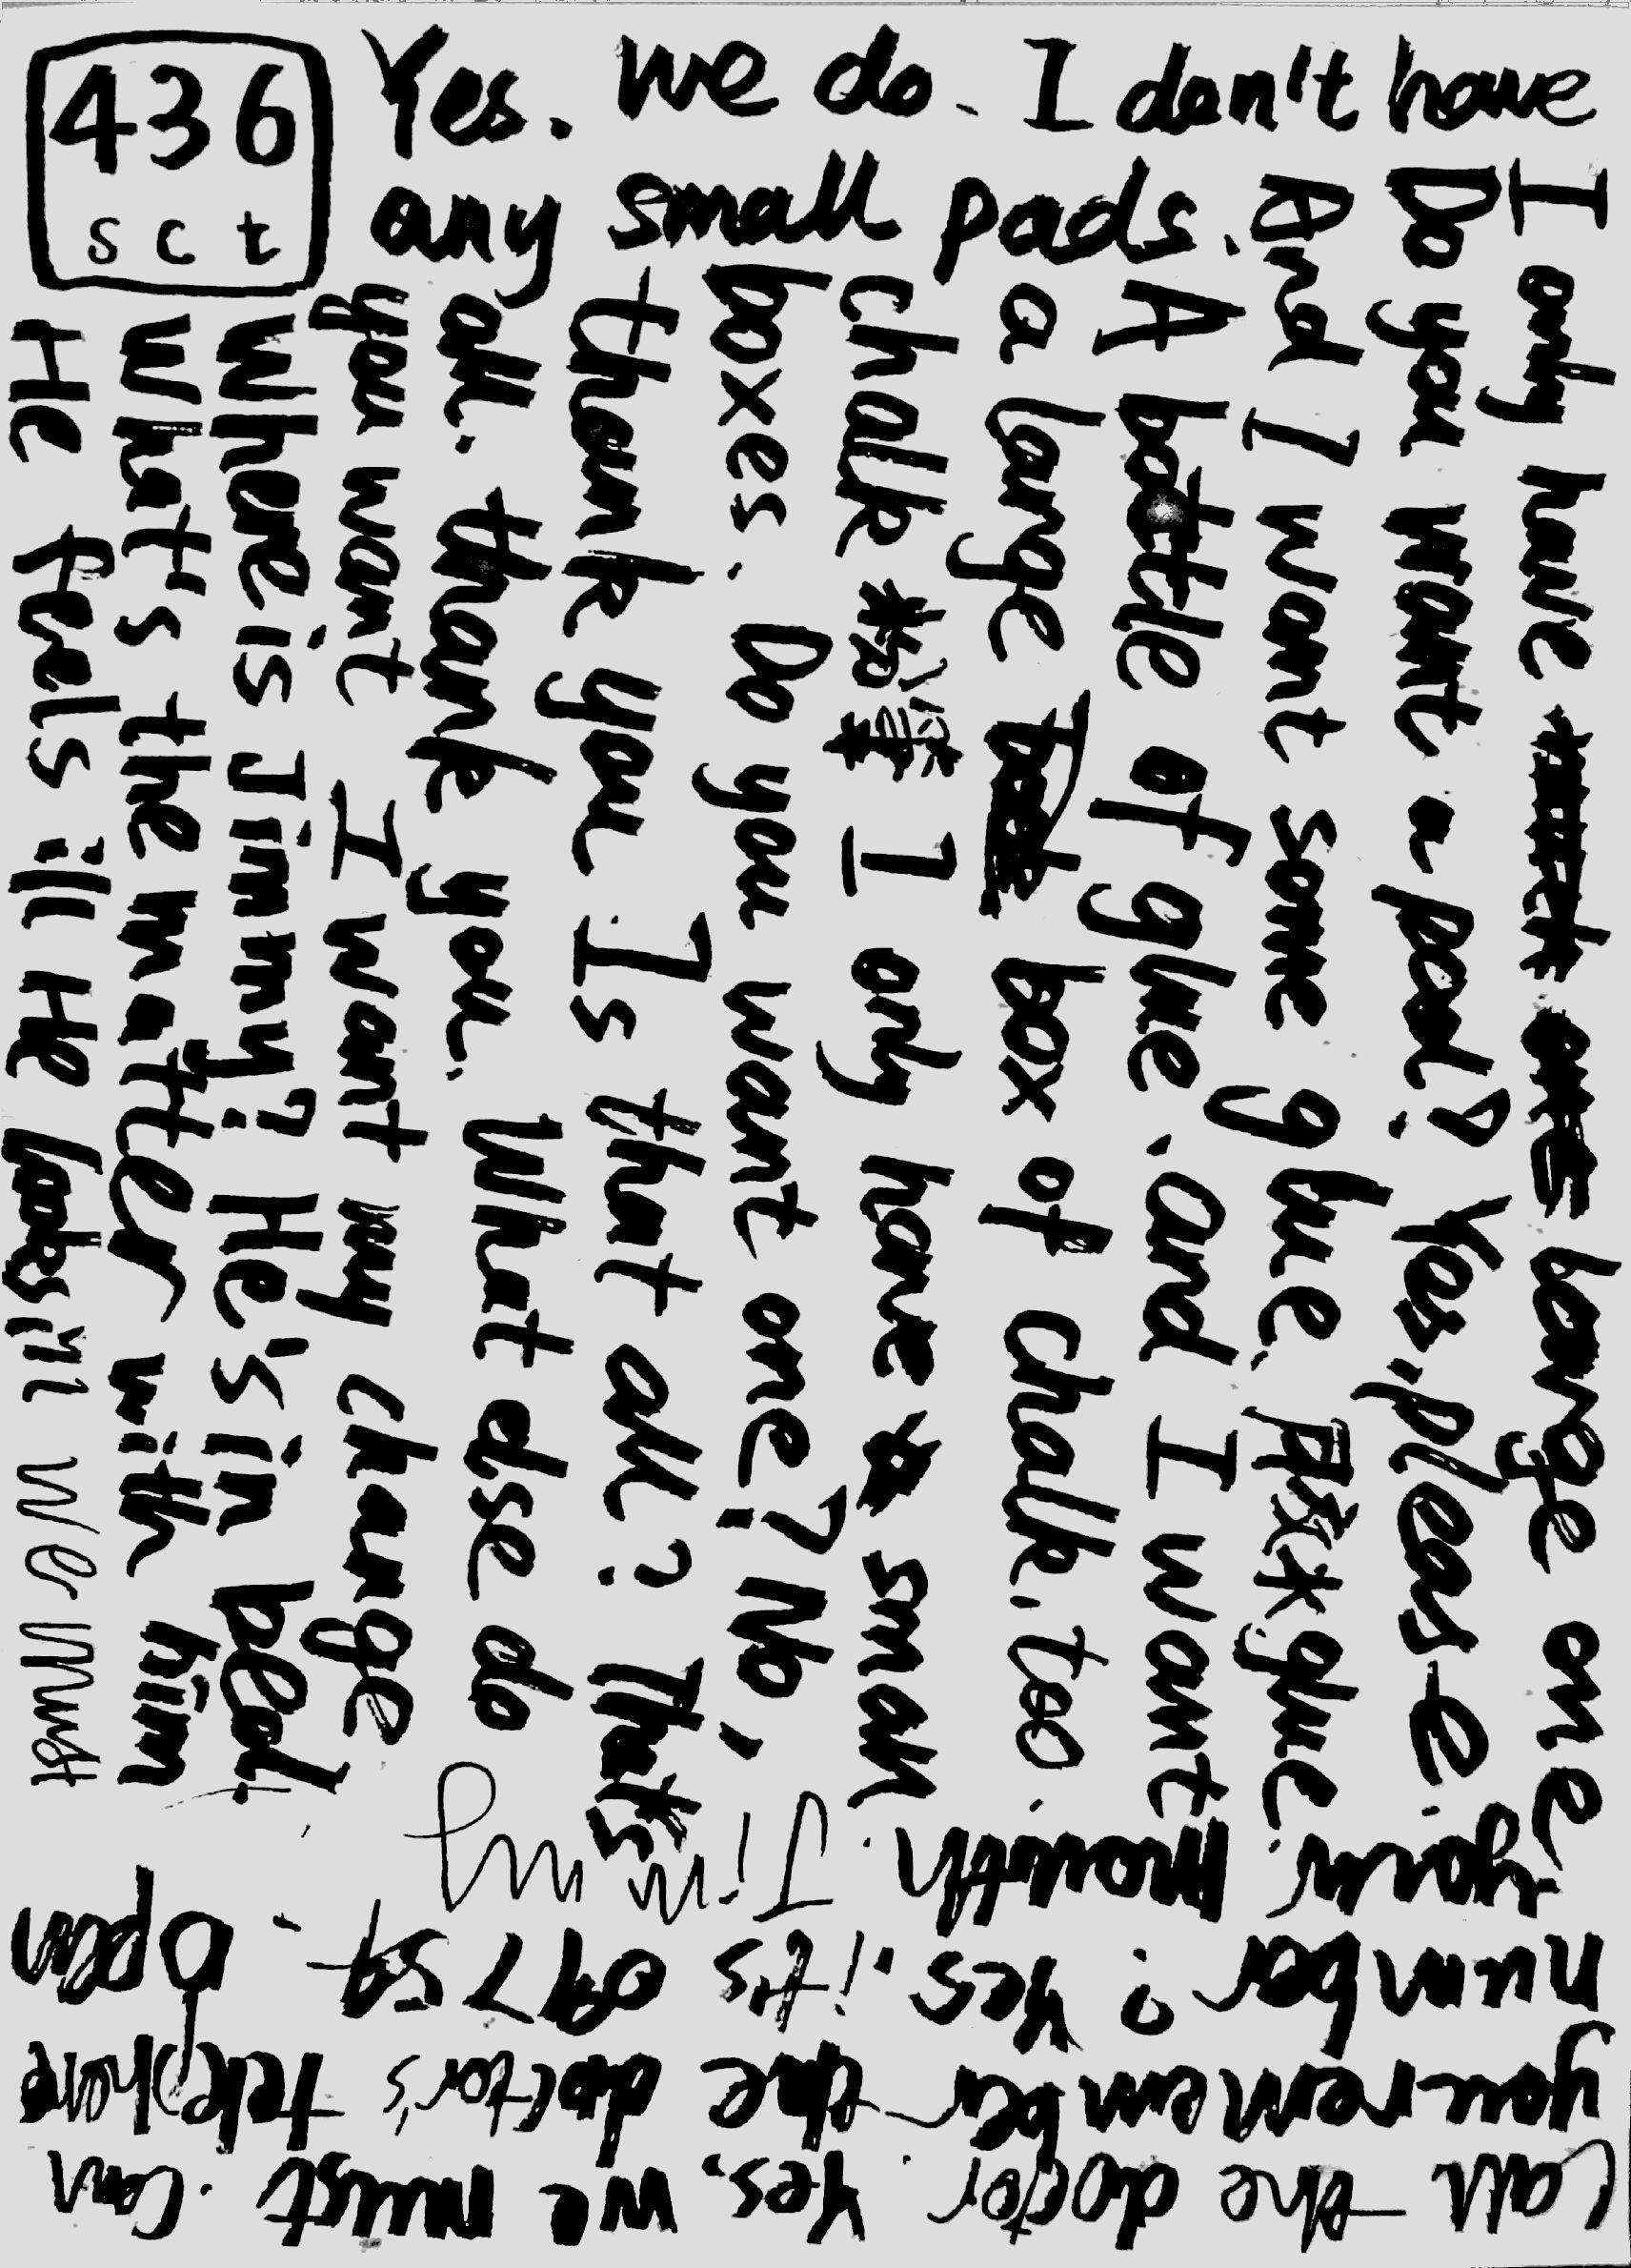 436
sct
Yes. we do. I don't have
any small pads.
I only have large one
Do you want a pad? Yes, please.
And I want some glue. 胶水 glue.
A bottle of glue. and I want
a large box of chalk, too.
chalk 粉笔 I only have small
boxes. Do you want one? No,
thank you. Is that all? That's
all. thank you. What else do
you want I want my change
Where is Jimmy? He's in bed
What's the matter with him
He feels ill He looks ill we must
call the doctor. Yes, we must. Can
you remember the doctor's telephone
number? Yes. It's 09754. Open
your mouth. Jimmy